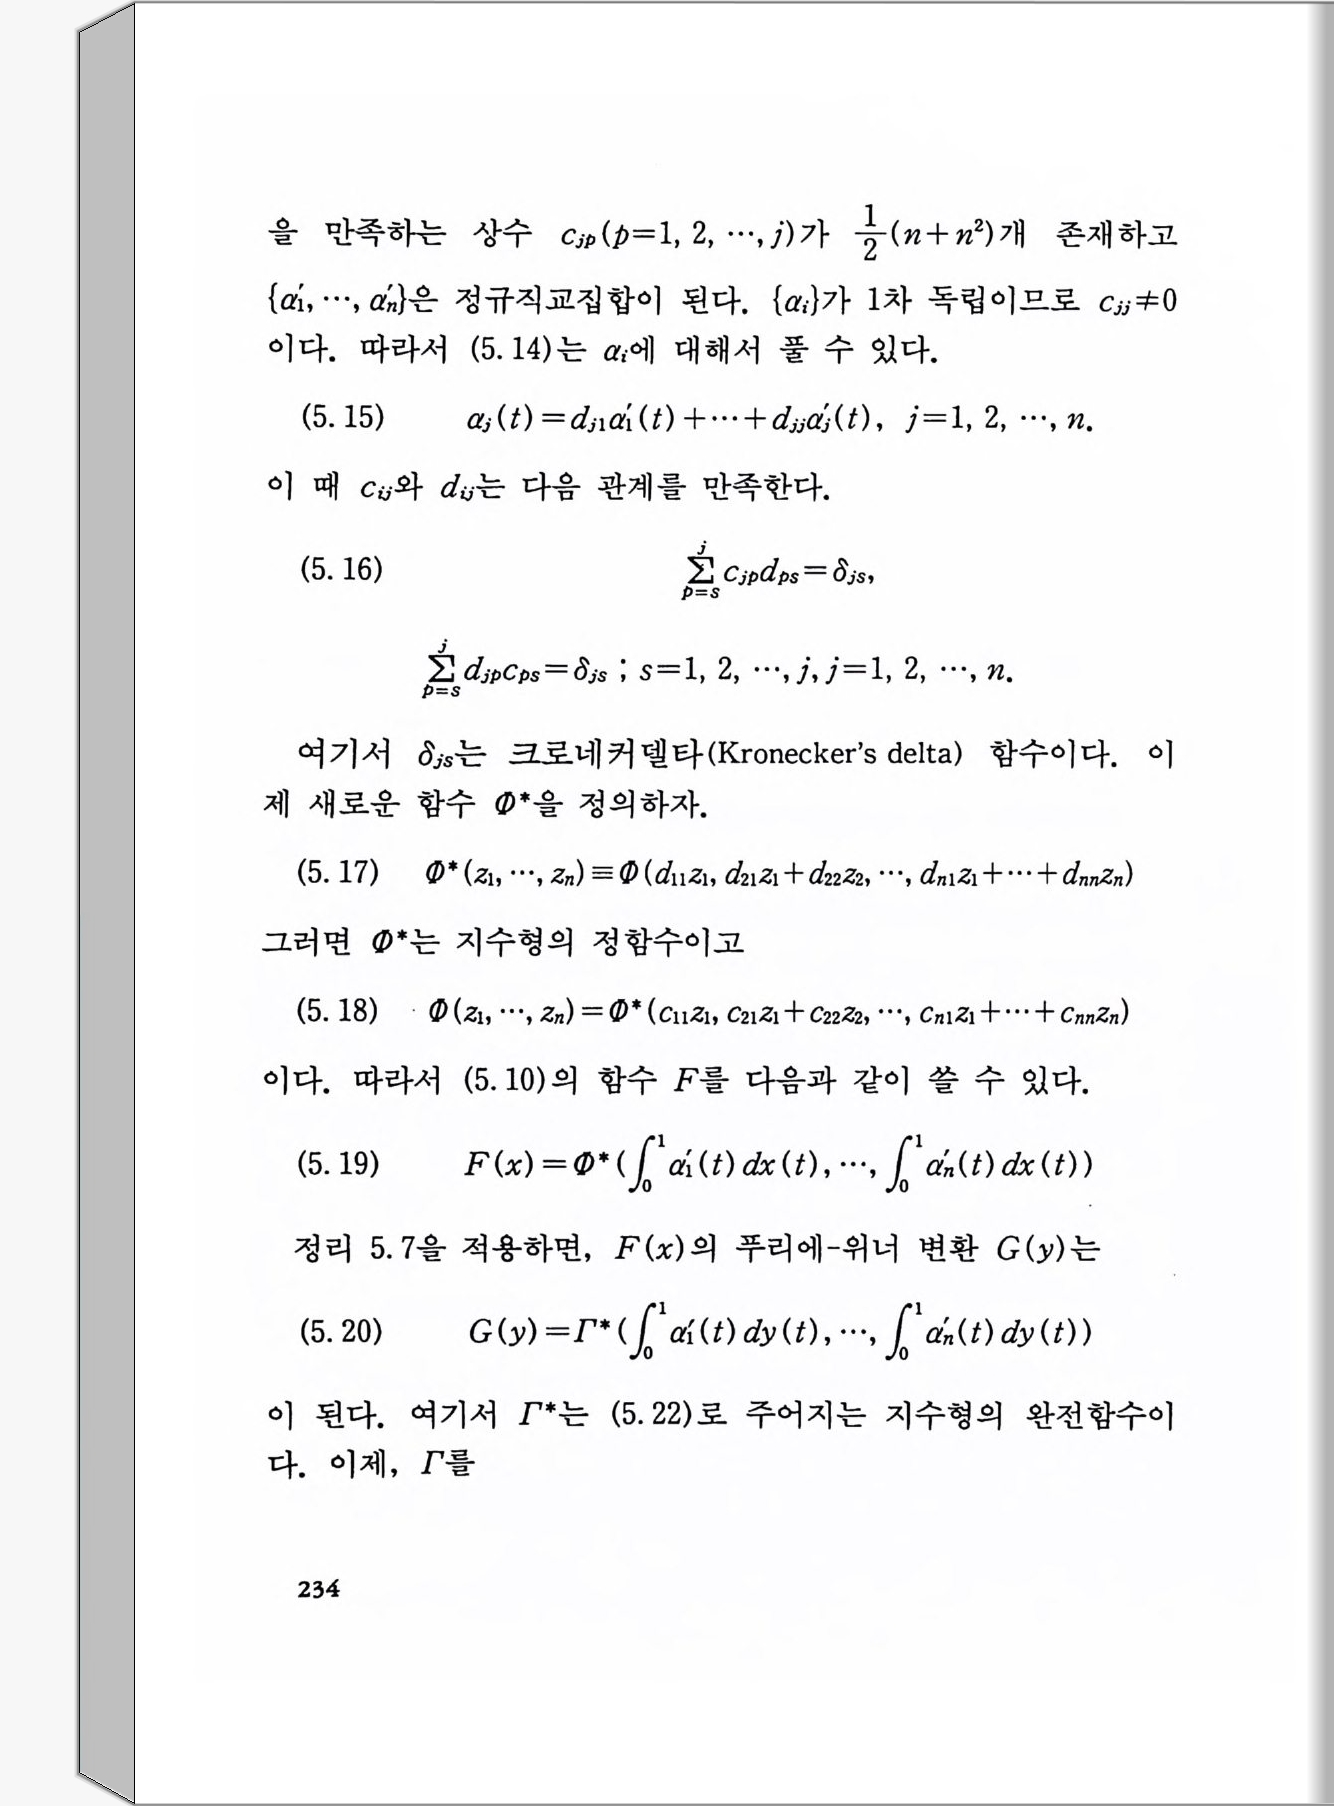 을 만족하는 상수 c_{jp}(p=1, 2, ⋯, j)가 \frac{1}{2}(n+n²)개 존재하고
{α₁′, ⋯, αₙ′}은 정규직교집합이 된다. {α_i}가 1차 독립이므로 c_{jj}≠0
이다. 따라서 (5.14)는 α_i에 대해서 풀 수 있다.
(5.15) α_j(t)=d_{j1}α₁′(t)+⋯+d_{jj}α_j′(t), j=1, 2, ⋯, n.
이 때 c_{ij}와 d_{ij}는 다음 관계를 만족한다.
(5.16) \sum_{p=s}^{j} c_{jp}d_{ps}=δ_{js},
\sum_{p=s}^{j} d_{jp}c_{ps}=δ_{js} ; s=1, 2, ⋯, j, j=1, 2, ⋯, n.
여기서 δ_{js}는 크로네커델타(Kronecker's delta) 함수이다. 이
제 새로운 함수 Φ*을 정의하자.
(5.17) Φ*(z₁, ⋯, zₙ)≡Φ(d₁₁z₁, d₂₁z₁+d₂₂z₂, ⋯, d_{n1}z₁+⋯+d_{nn}zₙ)
그러면 Φ*는 지수형의 정함수이고
(5.18) Φ(z₁, ⋯, zₙ)=Φ*(c₁₁z₁, c₂₁z₁+c₂₂z₂, ⋯, c_{n1}z₁+⋯+c_{nn}zₙ)
이다. 따라서 (5.10)의 함수 F를 다음과 같이 쓸 수 있다.
(5.19) F(x)=Φ*(∫₀¹α₁′(t)dx(t), ⋯, ∫₀¹αₙ′(t)dx(t))
정리 5.7을 적용하면, F(x)의 푸리에-위너 변환 G(y)는
(5.20) G(y)=Γ*(∫₀¹α₁′(t)dy(t), ⋯, ∫₀¹αₙ′(t)dy(t))
이 된다. 여기서 Γ*는 (5.22)로 주어지는 지수형의 완전함수이
다. 이제, Γ를
234